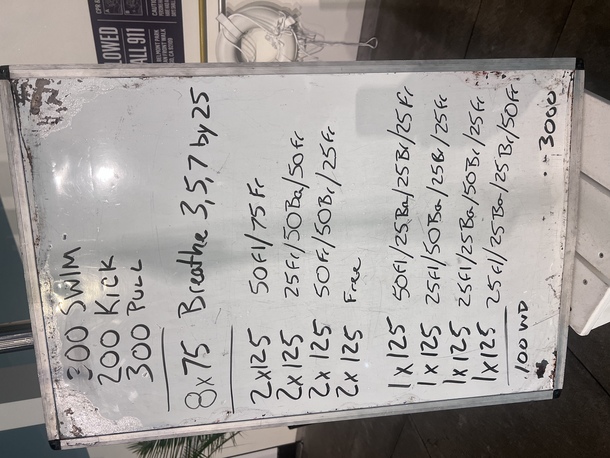 200 SWIM.
200 KICK
300 PULL
8x75 Breathe 3,5,7 by 25
2x125 50Fl/75 Fr
2x125 25Fr/50Ba/50Fr
2x125 50Fr/50Br/25Fr
2x125 Free
1x125 50Fl/25Ba/25Br/25Fr
1x125 25Fl/50Ba/25Br/25Fr
1x125 25Fl/25Ba/50Br/25Fr
1x125 25Fl/25Ba/25Br/50Fr
100 WD
3000
ALL 911